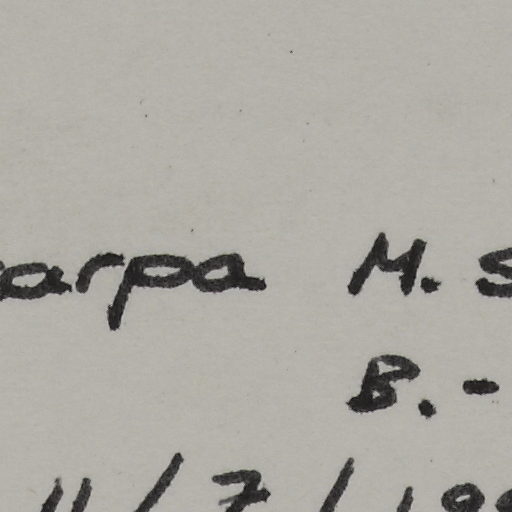 arpa M. S
B. -
11/7/199